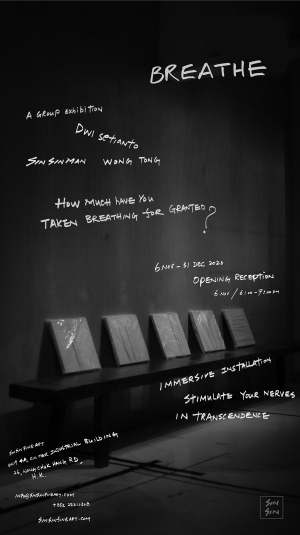 BREATHE
A GROUP EXHIBITION
DWI SETIANTO
SIN SIN MAN WONG TONG
HOW MUCH HAVE YOU
TAKEN BREATHING FOR GRANTED?
6 NOV - 31 DEC 2020
OPENING RECEPTION
6 NOV / 6:00 - 9:00PM
IMMERSIVE INSTALLATION
STIMULATE YOUR NERVES
IN TRANSCENDENCE
SIN SIN FINE ART
UNIT 4A, INDUSTRIAL BUILDING
26, WONG CHUK HANG RD,
H.K.
INFO@SINSINFINEART.COM
SINSINFINEART.COM
SIN
SIN